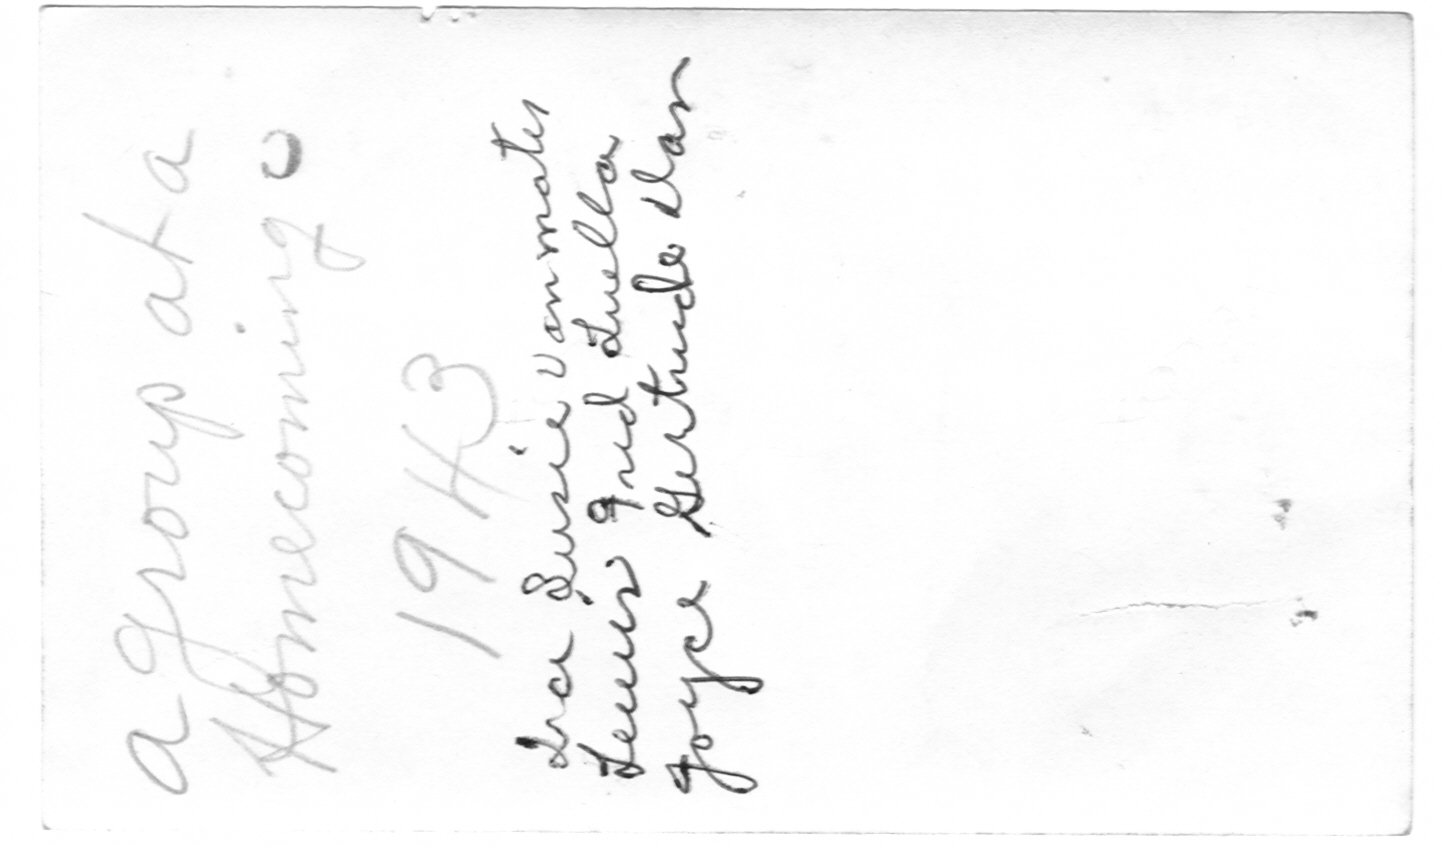 a group at a
Homecoming
1943
Ira Susie Vanmater
Lewis Fred Luella
Joyce Gertrude Dan